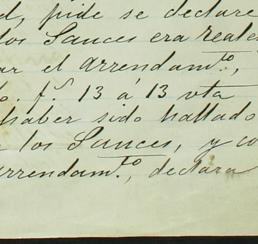 d, pide se declare
los Sauces era reale
ar el arrendam.to,
o. f.s 13 á 13 vta
haber sido hallado
los Sauces, y co
arrendam.to, declara